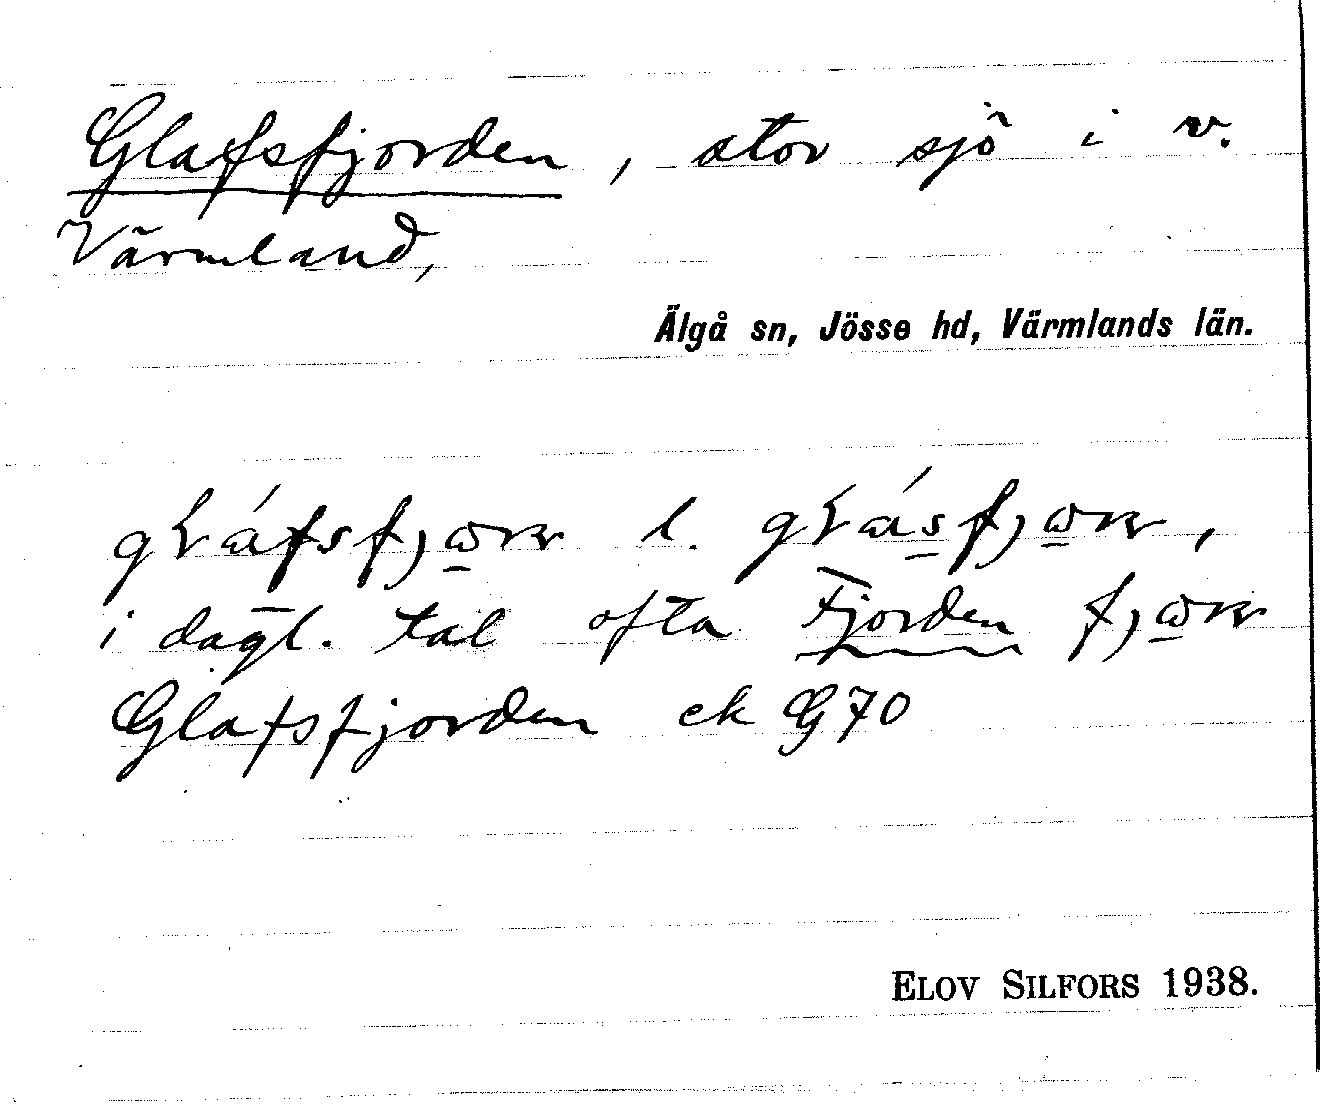 Glafsfjorden, stor sjö i v.
Värmland,
Älgå sn, Jösse hd, Värmlands län.
l.
i dagl. tal ofta Fjorden
Glafsfjorden ek G70
ELOV SILFORS 1938.